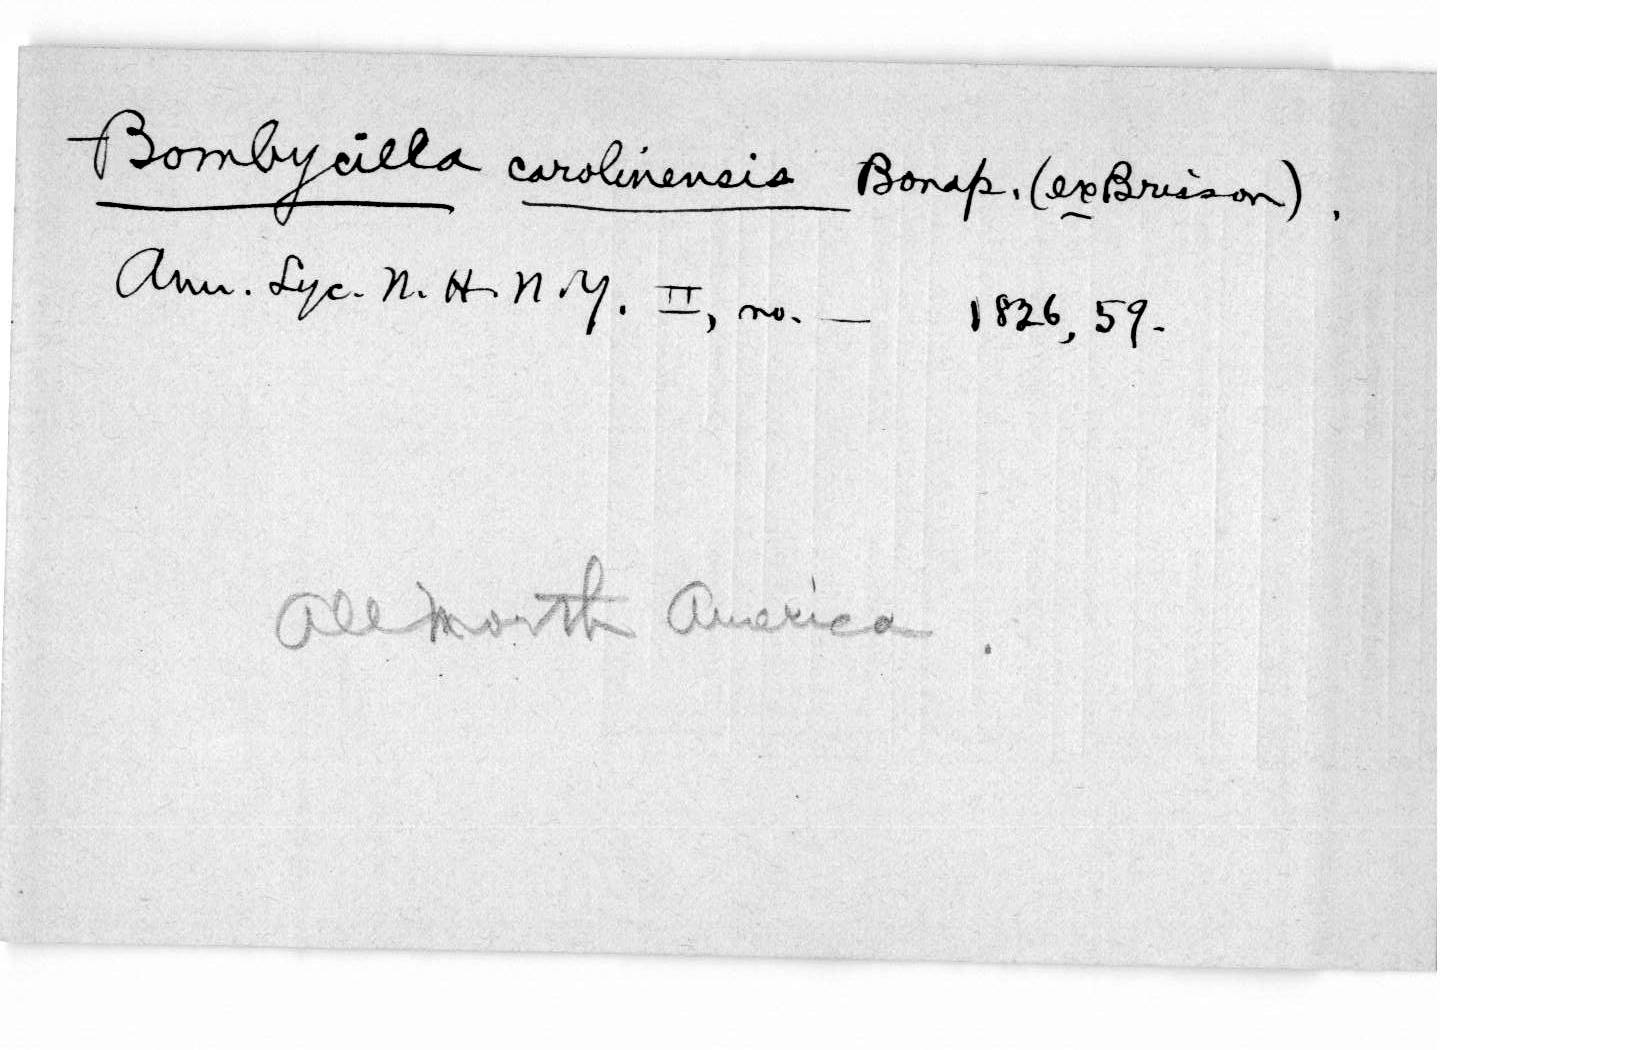 Bombycilla carolinensis Bonap. (ex Brisson).
Ann. Lyc. N. H. N. Y. II, no. — 1826, 59.
All North America.